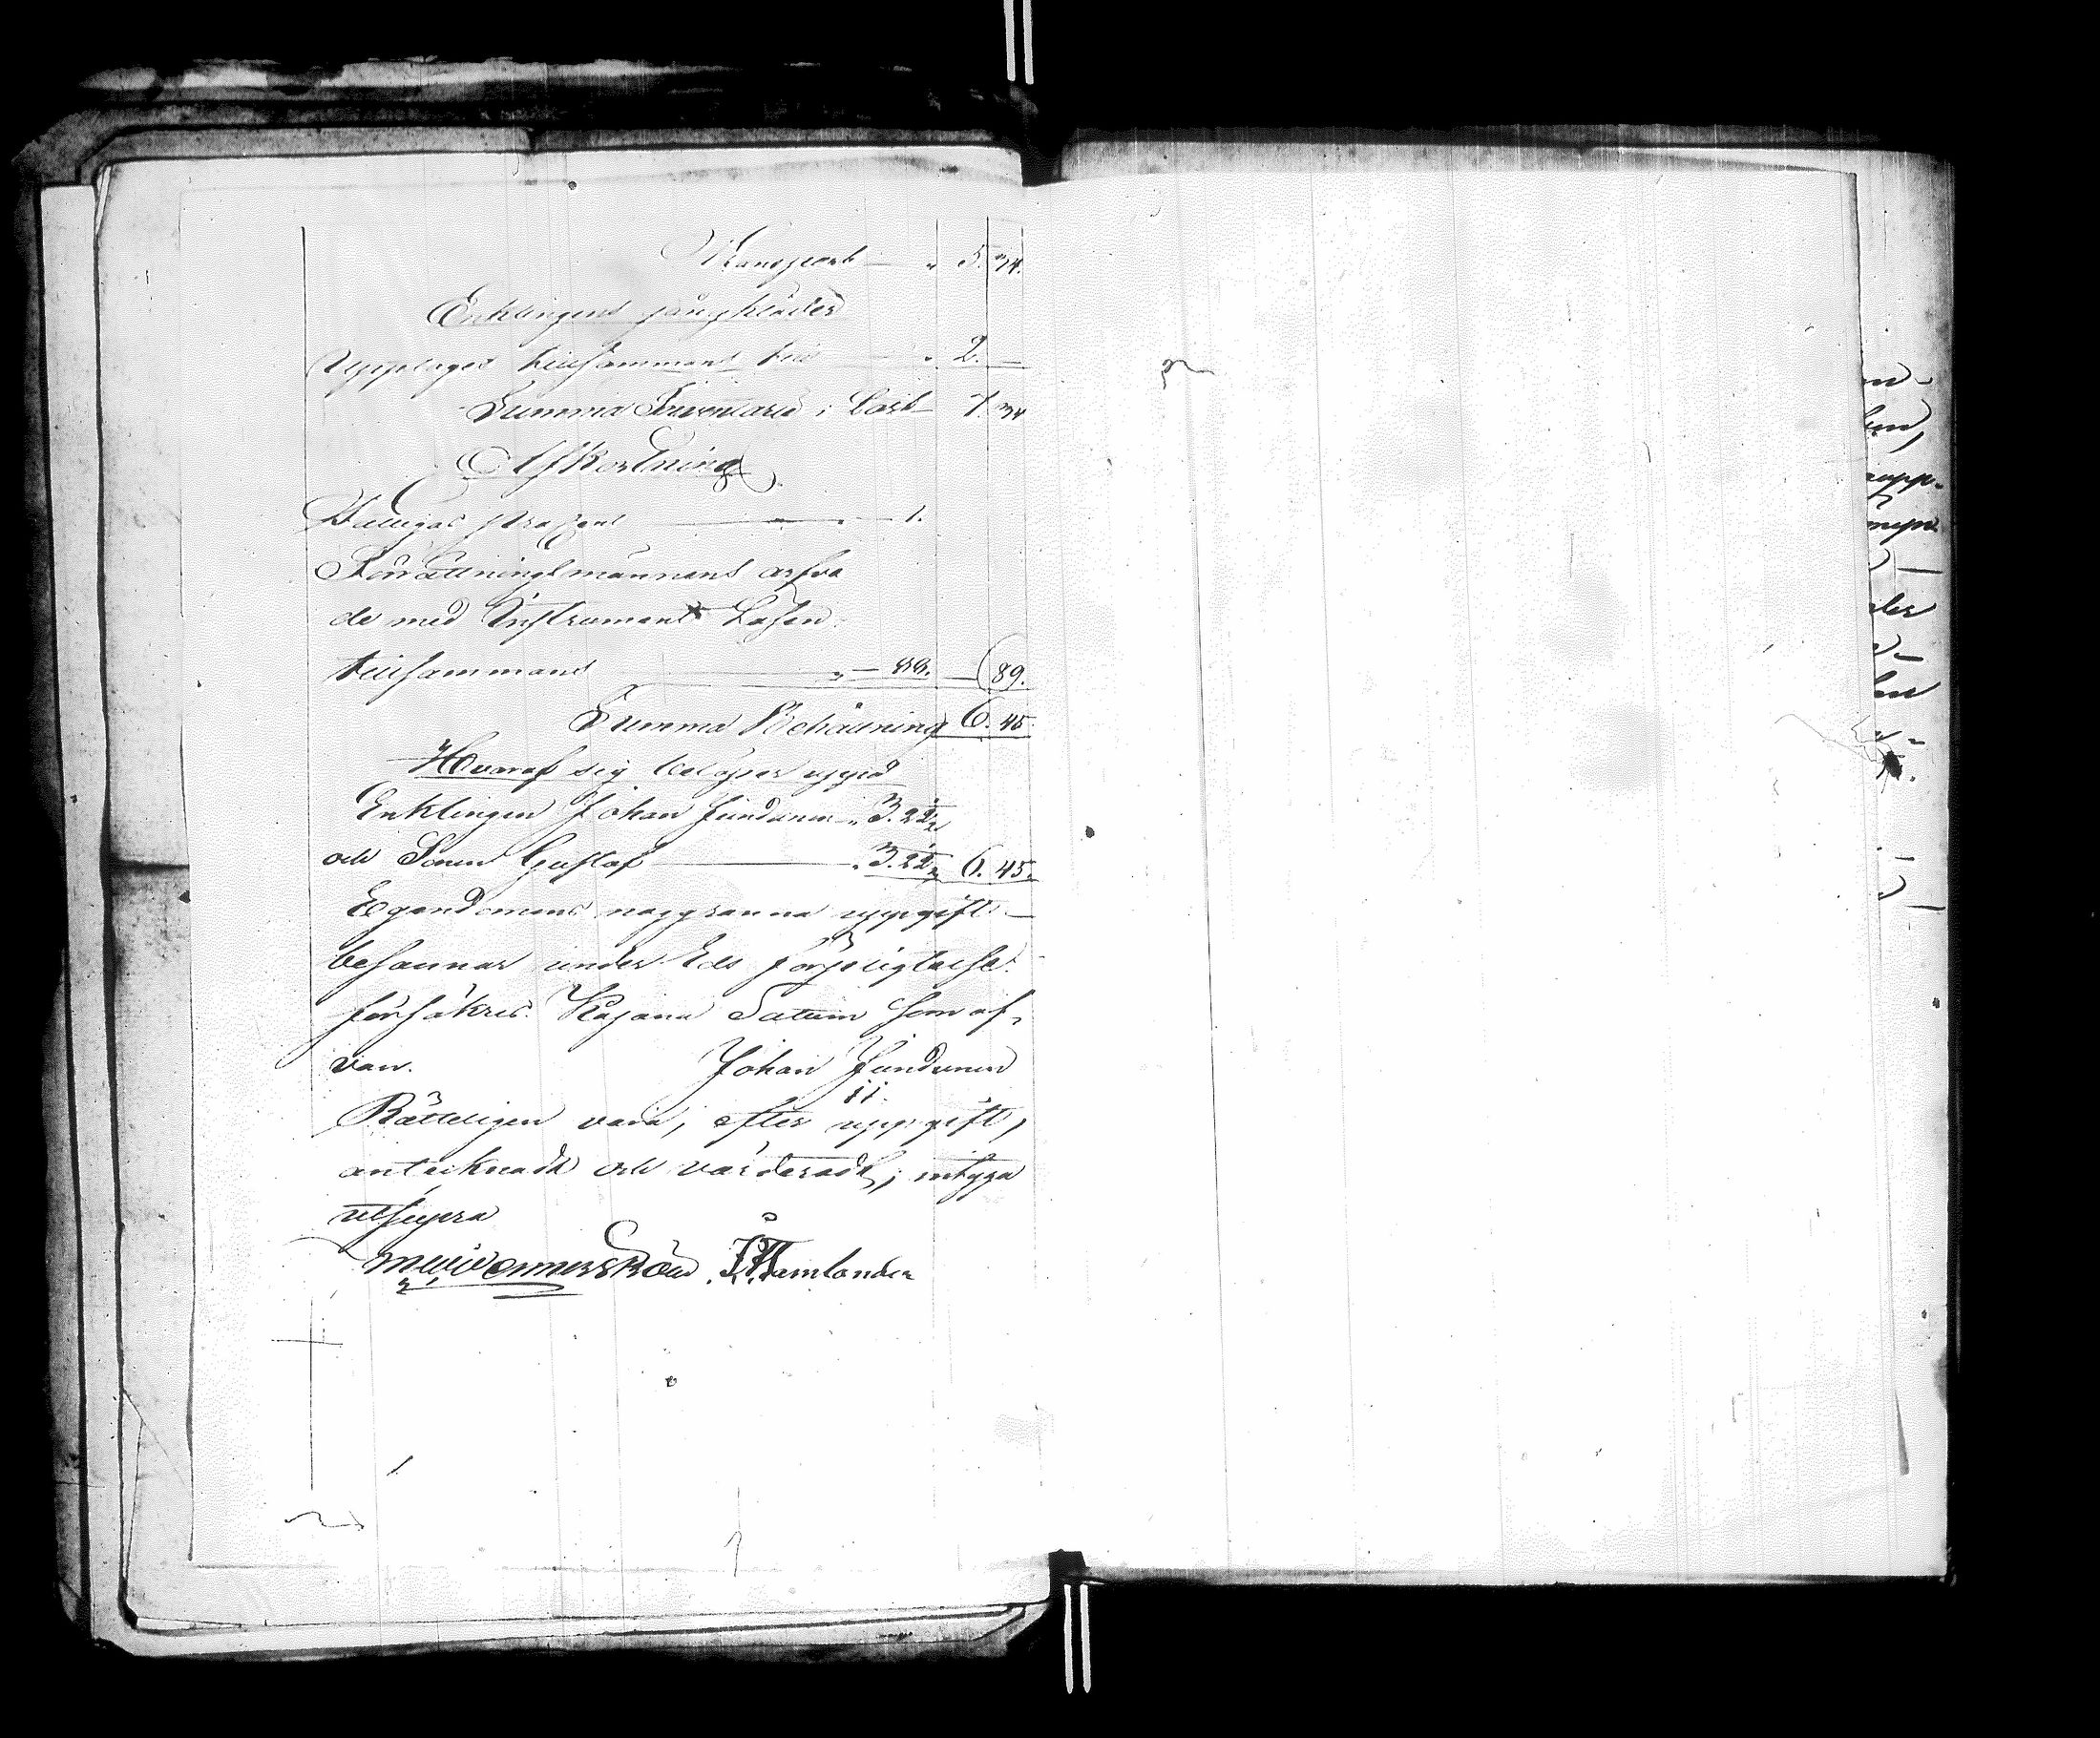 Transport — „ 5. 34.
Enklingens gångkläder
Upptages tillsammans för — „ 2. —
Summa Inventarii i Boet — 7. 34
Afkortning
Fattigas procent — „ — 1.
Förrättningsmännens arfvo
de med Instruments Lösen
tillsammans — „ — 88. — 89.
Summa Behållning 6. 45.
Hvaraf sig belöper uppå
Enklingen Johan Jundunen „ 3. 22½
och Sonen Gustaf — „ 3. 22½ 6. 45.
Egendomens noggranna uppgift —
besannar under Eds förpligtelse.
försäkras. Kajana Datum som of-
van. Johan Jundunen
Rätteligen vara, efter uppgift,
antecknadt och värderadt, intyga
utsupra